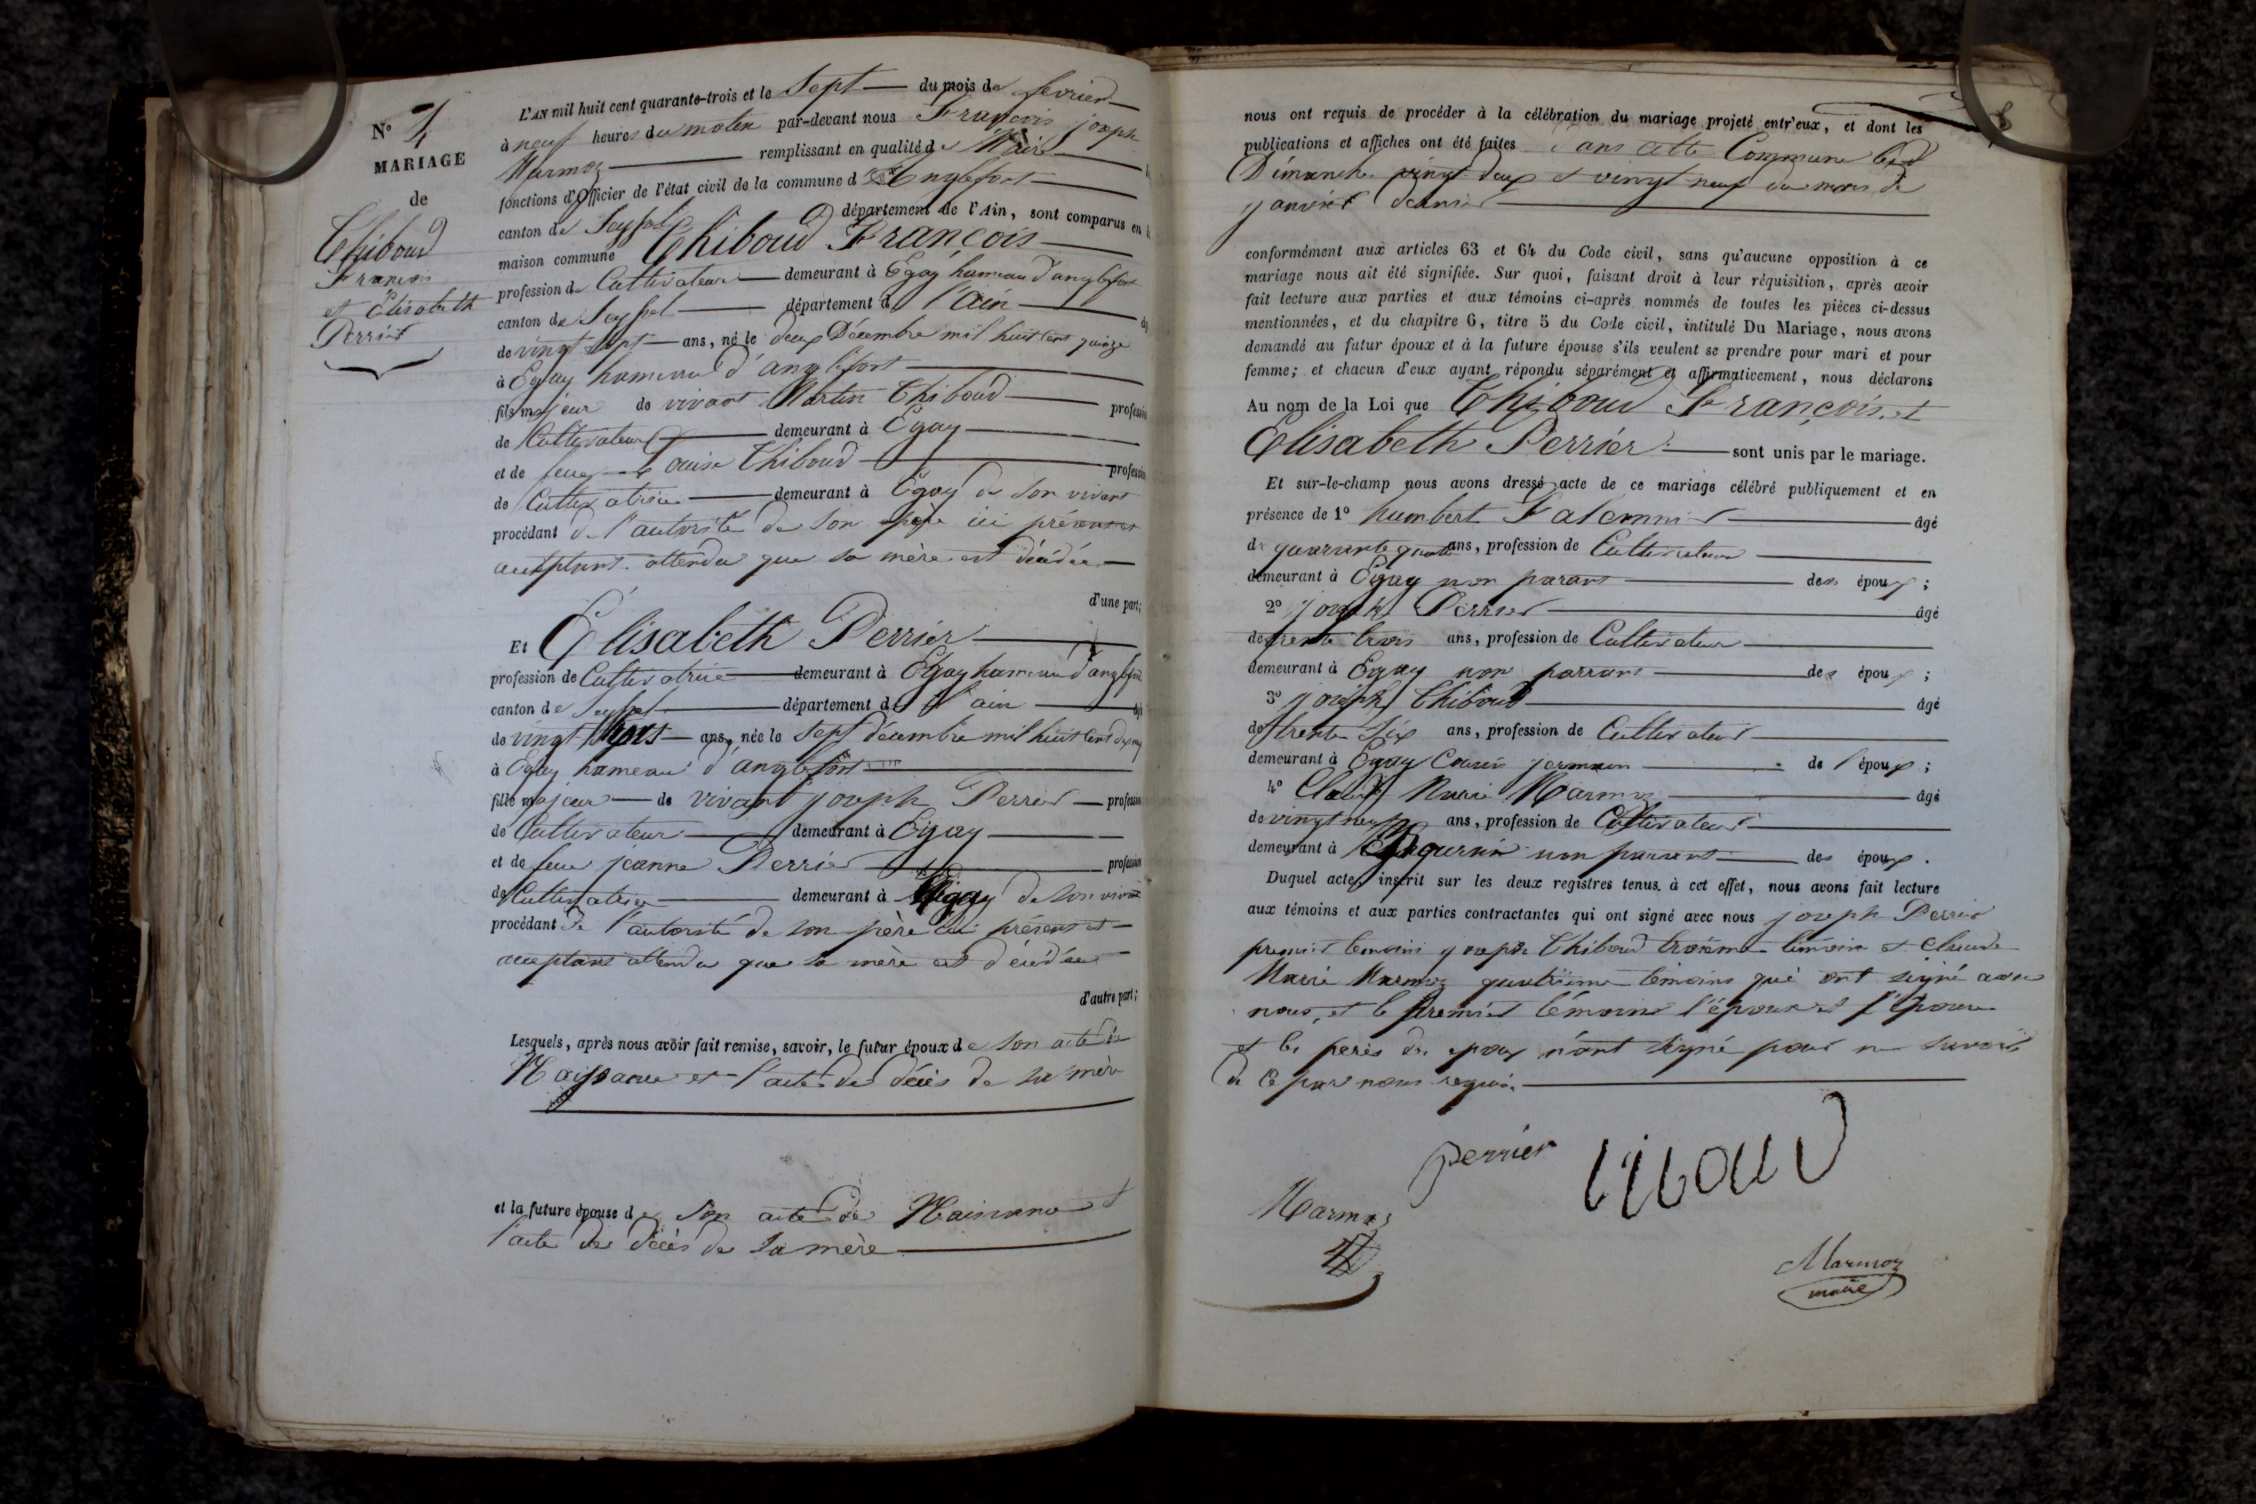 N° 4
MARIAGE
de
Thiboud
François
et Elisabeth
Perrier
L'AN mil huit cent quarante-trois et le Sept du mois de fevrier
à neuf heures du matin par-devant nous François joseph
Marmoz remplissant en qualité de Maire
fonctions d'Officier de l'état civil de la commune d'Anglefort
canton de Seyssel département de l'Ain, sont comparus en
maison commune Thiboud François
profession de Cultivateur demeurant à Egay hameau d'anglefort
canton de Seyssel département de l'ain
de vingt sept ans, né le deux Décembre mil huit cent quinze
à Egay hameau d'anglefort
fils majeur de vivant Martin Thiboud profession
de Cultivateur demeurant à Egay
et de feue Louise Thiboud profession
de Cultivatrice demeurant à Egay de son vivant
procédant de l'autorité de son père ici présent et
acceptant attendu que sa mère est décédée
d'une part;
Et Elisabeth Perrier
profession de Cultivatrice demeurant à Egay hameau d'anglefort
canton de Seyssel département de l'ain
de vingt trois ans, née le sept décembre mil huit cent dix neuf
à Egay hameau d'anglefort
fille majeur de vivant joseph Perrier profession
de Cultivateur demeurant à Egay
et de feue jeanne Perrier profession
de Cultivatrice demeurant à Egay de son vivant
procédant de l'autorité de son père ici présent et
acceptant attendu que sa mère est décédée
d'autre part;
Lesquels, après nous avoir fait remise, savoir, le futur époux de son acte de
Naissance et l'acte de décès de sa mère
et la future épouse de son acte de Naissance et
l'acte de décès de sa mère
8
nous ont requis de procéder à la célébration du mariage projeté entr'eux, et dont les
publications et affiches ont été faites dans cette Commune les
Dimanche vingt deux et vingt neuf du mois de
janvier dernier
conformément aux articles 63 et 64 du Code civil, sans qu'aucune opposition à ce
mariage nous ait été signifiée. Sur quoi, faisant droit à leur réquisition, après avoir
fait lecture aux parties et aux témoins ci-après nommés de toutes les pièces ci-dessus
mentionnées, et du chapitre 6, titre 5 du Code civil, intitulé Du Mariage, nous avons
demandé au futur époux et à la future épouse s'ils veulent se prendre pour mari et pour
femme; et chacun d'eux ayant répondu séparément et affirmativement, nous déclarons
Au nom de la Loi que Thiboud François et
Elisabeth Perrier sont unis par le mariage.
Et sur-le-champ nous avons dressé acte de ce mariage célébré publiquement et en
présence de 1° humbert âgé
de quarante quatre ans, profession de Cultivateur
demeurant à Egay non parant des époux;
2° joseph Perrier âgé
de trente trois ans, profession de Cultivateur
demeurant à Egay non parrant des époux;
3° joseph Thiboud âgé
de trente six ans, profession de Cultivateur
demeurant à Egay Cousin jermain de l'époux;
4° Claude Marie Marmoz âgé
de vingt neuf ans, profession de Cultivateur
demeurant à non parrent des époux.
Duquel acte, inscrit sur les deux registres tenus à cet effet, nous avons fait lecture
aux témoins et aux parties contractantes qui ont signé avec nous joseph Perrier
premier temoin joseph Thiboud troisième témoin et claude
Marie Marmoz quatrième témoins qui ont signé avec
nous, et le premier témoins l'époux et l'épouse
et les pères des epoux n'ont signé pour ne savoir
de ce par nous requis.
perrier
Marmoz
Marmoz
maire